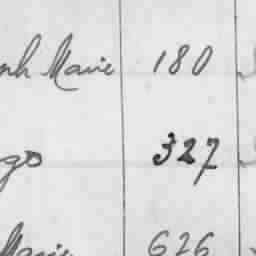 Marie 180
go 327
Marie 626